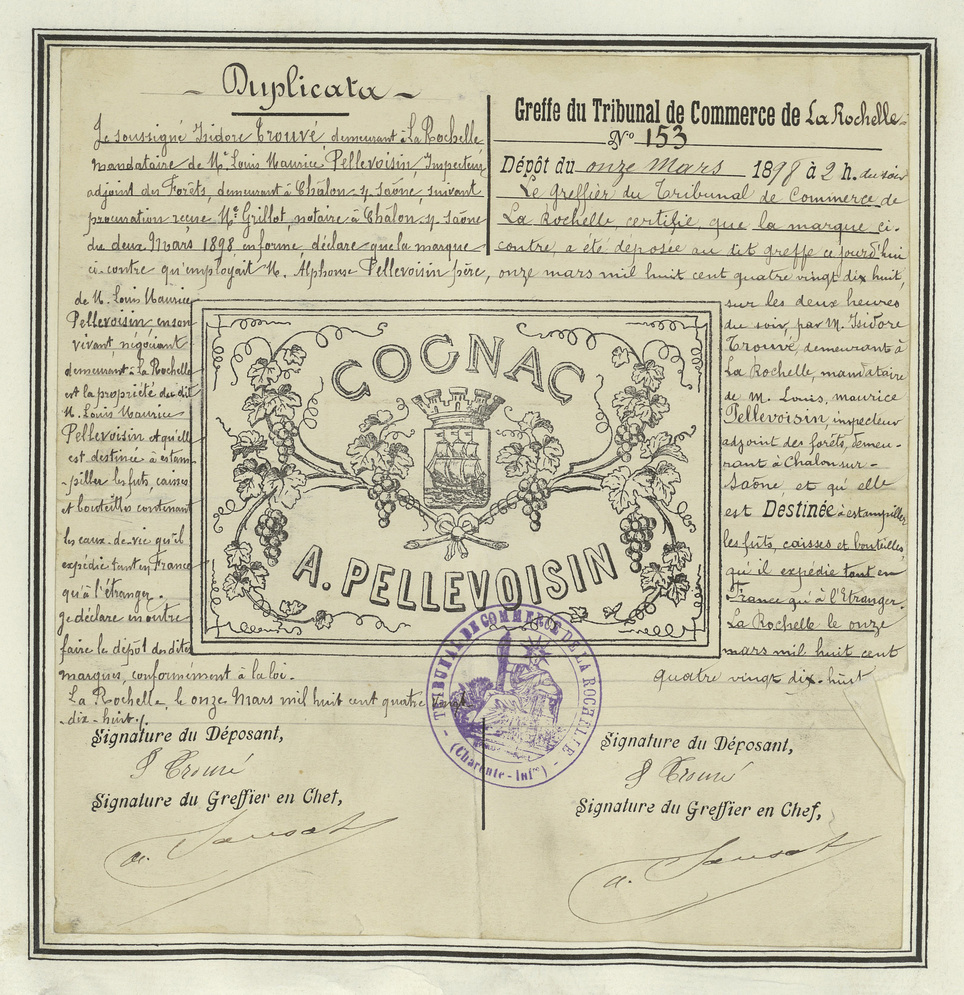 Duplicata
Je soussigné Isidore Trouvé demeurant à La Rochelle
mandataire de Mr. Louis Maurice Pellevoisin, Inspecteur
adjoint des Forêts, demeurant à Châlon s/ Saône, suivant
procuration reçue Me Grillot, notaire à Châlon s/ Saône
du deux Mars 1898 informe, déclare que la marque
ci-contre qu'employait M. Alphonse Pellevoisin père,
de M. Louis Maurice
Pellevoisin en son
vivant, négociant
demeurant à la Rochelle
est la propriété du dit
M. Louis Maurice
Pellevoisin et qu'elle
est destinée à estam-
-piller les futs, caisses
et bouteilles contenant
les eaux-de-vie qu'il
expédie tant en France
qu'à l'étranger.
Je déclare en outre
faire le dépôt des dites
marques, conformément à la loi.
La Rochelle, le onze Mars mil huit cent quatre vingt
-dix-huit./.
Signature du Déposant,
J Trouvé
Signature du Greffier en Chef,
a.
Greffe du Tribunal de Commerce de La Rochelle
No 153
Dépôt du onze Mars 1898 à 2 h. du soir
Le Greffier du Tribunal de Commerce de
La Rochelle, certifie, que la marque ci-
contre, a été déposée au dit greffe ce jourd'hui
onze mars mil huit cent quatre vingt dix huit,
sur les deux heures
du soir, par M. Isidore
Trouvé, demeurant à
La Rochelle, mandataire
de M. Louis, maurice
Pellevoisin, inspecteur
adjoint des forêts, demeu-
rant à Chalon sur-
Saône, et qu'elle
est Destinée à estampiller
les futs, caisses et bouteilles,
qu'il expédie tant en
France qu'à l'Etranger.
La Rochelle le onze
mars mil huit cent
quatre vingt dix-huit
Signature du Déposant,
J Trouvé
Signature du Greffier en Chef,
a.
COGNAC
A. PELLEVOISIN
TRIBUNAL DE COMMERCE DE LA ROCHELLE
(Charente-Infre)